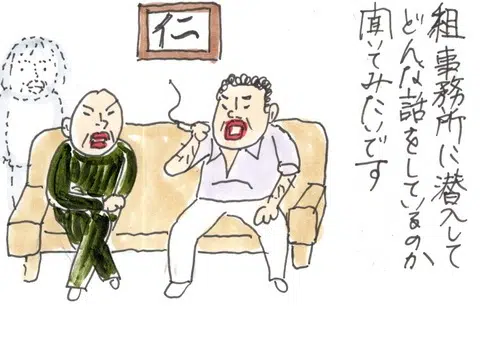 組事務所に潜入して
どんな話をしているのか
聞いてみたいです
仁